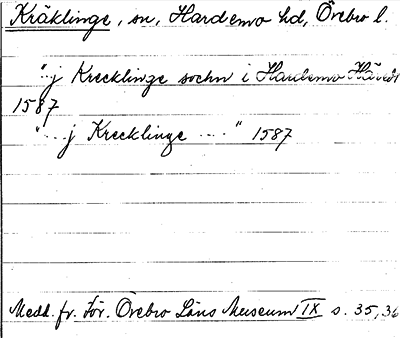 Kräklinge, sn, Hardemo hd, Örebro l.
"j Krecklinge sochn i Hardemo Häredt
1587
"...j Krecklinge ...." 1587
Medd. fr. För. Örebro Läns Museum IX s. 35, 36